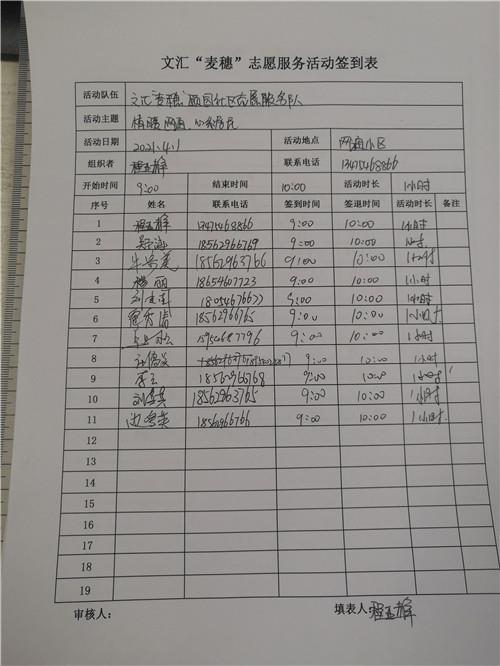 文汇“麦穗”志愿服务活动签到表
活动队伍 文汇“麦穗”颐园社区志愿服务队
活动主题
活动日期 2021.4.1 活动地点 网通小区
组织者 联系电话 13475468866
开始时间 9:00 结束时间 10:00 活动时长 1小时
序号 姓名 联系电话 签到时间 签退时间 活动时长 备注
1 13475468866 9:00 10:00 1小时
2 18562966769 9:00 10:00 1小时
3 18562963766 9:00 10:00 1小时
4 杨丽 18654607723 9:00 10:00 1小时
5 9:00 10:00 1小时
6 18562966765 9:00 10:00 1小时
7 9:00 10:00 1小时
8 9:00 10:00 1小时
9 李玉 18562966768 9:00 10:00 1小时
10 18562963765 9:00 10:00 1小时
11 18562966766 9:00 10:00 1小时
12
13
14
15
16
17
18
19
审核人: 填表人: